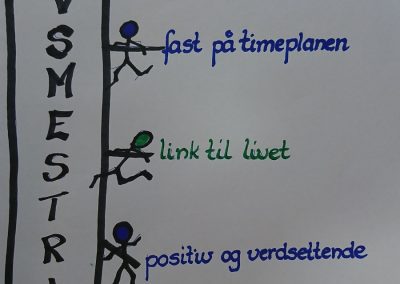 VSMESTRI
fast på timeplanen
link til livet
positiv og verdsettende